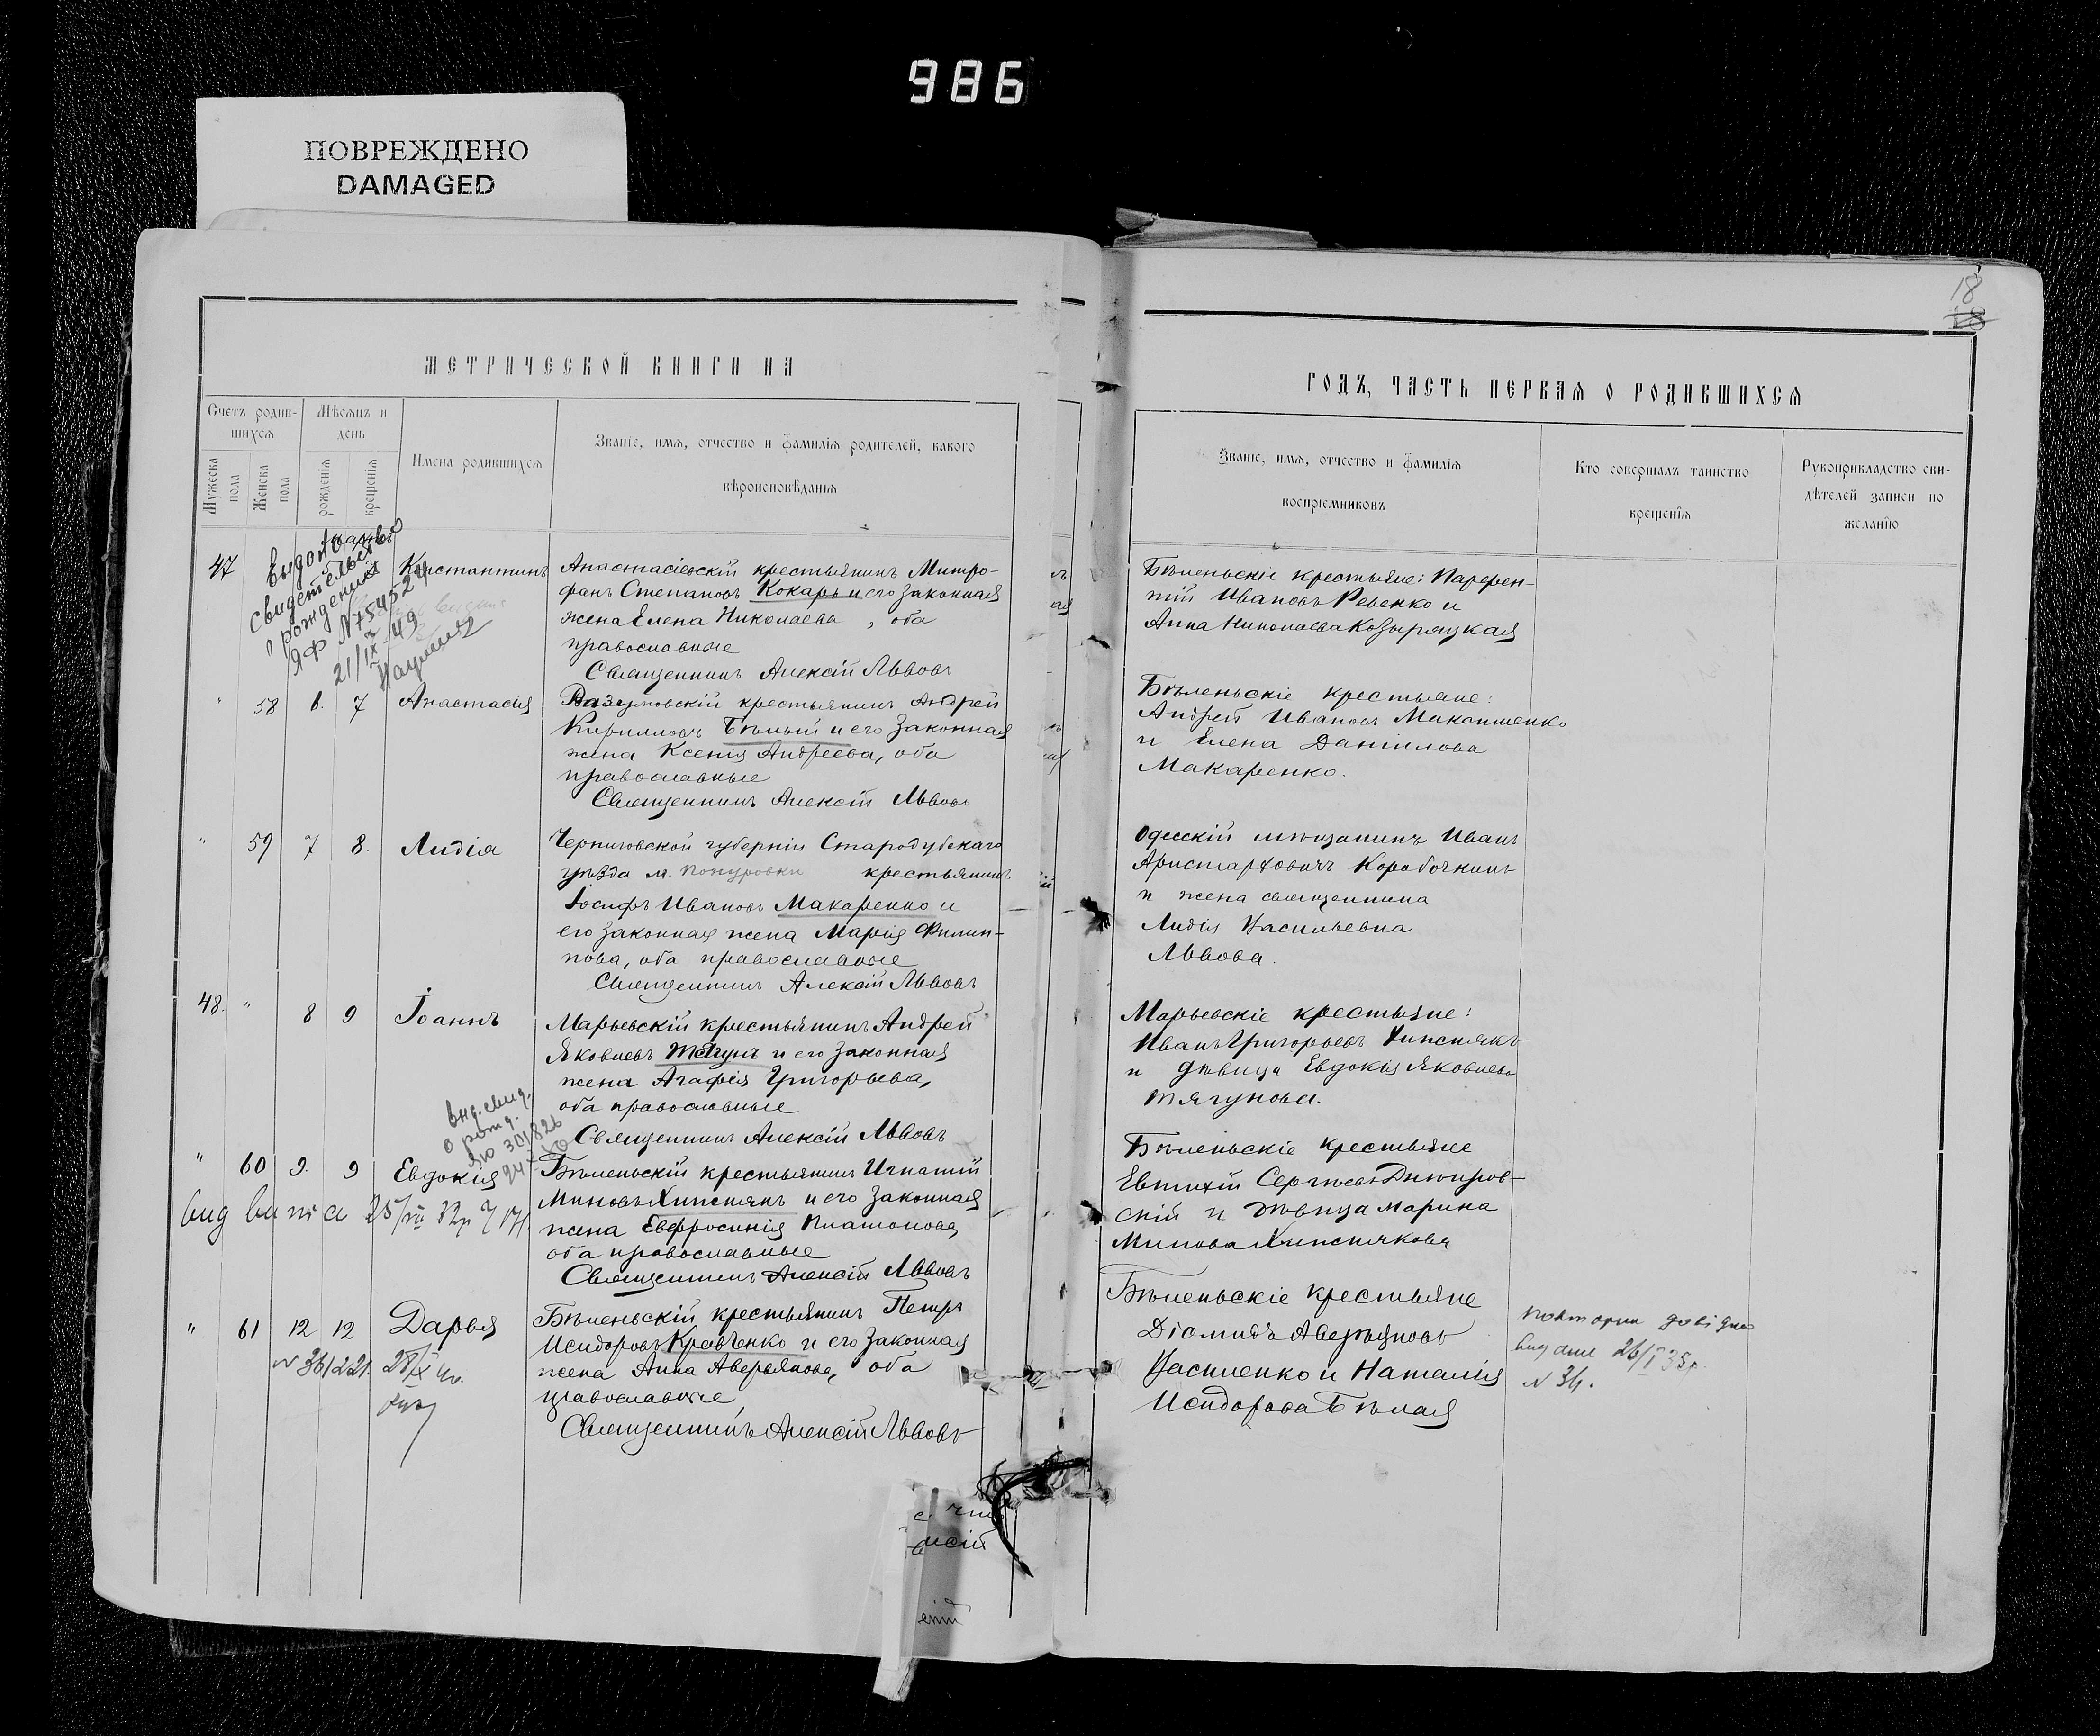 986
ПОВРЕЖДЕНО
DAMAGED
18
18
МЕТРИЧЕСКОЙ КНИГИ НА
Счетъ родив-
шихся
Мѣсяцъ и
день
Мужеска
пола
Женска
пола
рожденія
крещенія
Имена родившихся
Званіе, имя, отчество и фамилія родителей, какого
вѣроисповѣданія
47
Выдано
свидетельство
о рождении
ЯФ №754524
21/IX-49
Константинъ
Анастасіевскій крестьянинъ Митро-
фанъ Степановъ Кокаръ и его законная
жена Елена Николаева, оба
православные
Священникъ Алексій Львовъ
" 58 6. 7 Анастасія
Разумовскій крестьянинъ Андрей
Кирилловъ Бѣлый и его законная
жена Ксенія Андреева, оба
православные
Священникъ Алексій Львовъ
" 59 7 8. Лидія
Черниговской губерніи Стародубскаго
уѣзда м. Понуровки крестьянинъ
Іосифъ Ивановъ Макаренко и
его законная жена Марія Филип-
пова, оба православные
Священникъ Алексій Львовъ
48. " 8 9 Іоаннъ
Марьевскій крестьянинъ Андрей
Яковлевъ Тягунъ и его законная
жена Агафія Григорьева,
оба православные
Священникъ Алексій Львовъ
выд. свид.
о рожд.
ЯЮ 301826
" 60 9. 9 Евдокія
Бѣленьскій крестьянинъ Игнатій
Миновъ Хипснякъ и его законная
жена Евфросинія Платонова,
оба православные
Священникъ Алексій Львовъ
" 61 12 12 Дарья
Бѣленьскій крестьянинъ Петръ
Исидоровъ Кравченко и его законная
жена Анна Аверьянова, оба
православные
Священникъ Алексій Львовъ
ГОДЪ, ЧАСТЬ ПЕРВАЯ О РОДИВШИХСЯ
Званіе, имя, отчество и фамилія
воспріемниковъ
Кто совершалъ таинство
крещенія
Рукоприкладство сви-
дѣтелей записи по
желанію
Бѣленьскіе крестьяне: Парфен-
тій Ивановъ Ревенко и
Анна Николаева Козыряцкая
Бѣленьскіе крестьяне:
Андрей Ивановъ Миконшенко
и Елена Даніилова
Макаренко.
Одесскій мѣщанинъ Иванъ
Аристарховичъ Коробочкинъ
и жена священника
Лидія Васильевна
Львова.
Марьевскіе крестьяне:
Иванъ Григорьевъ Хипснякъ
и дѣвица Евдокія Яковлева
Тягунова.
Бѣленьскіе крестьяне
Евтихій Сергѣевъ Днѣпров-
скій и дѣвица Марина
Минова Хипснякова
Бѣленьскіе крестьяне
Діомидъ Аверьяновъ
Василенко и Наталія
Исидорова Бѣлая
видане 26/I 35 р.
№ 34.